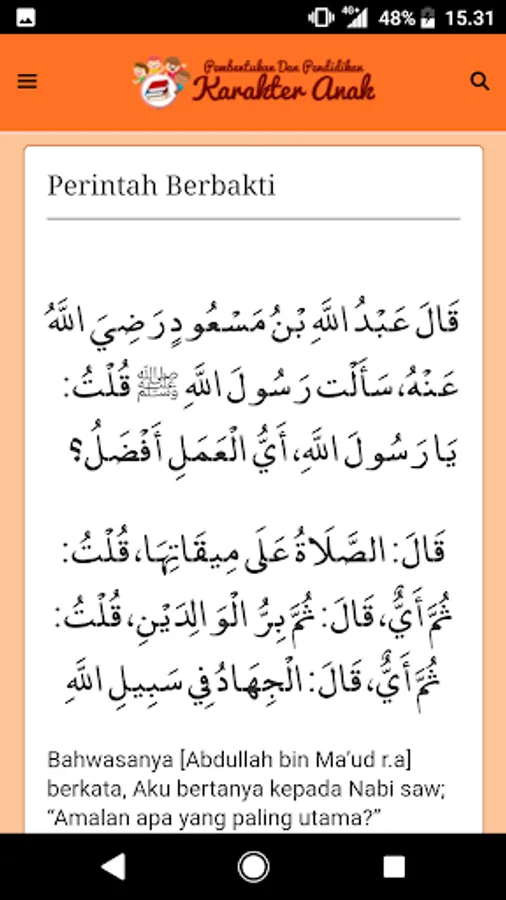 4G+ 48% 15.31
Pembentukan Dan Pendidikan
Karakter Anak
Perintah Berbakti
قَالَ عَبْدُ اللَّهِ بْنُ مَسْعُودٍ رَضِيَ اللَّهُ
عَنْهُ، سَأَلْت رَسُولَ اللَّهِ ﷺ قُلْتُ:
يَا رَسُولَ اللَّهِ، أَيُّ الْعَمَلِ أَفْضَلُ؟
قَالَ: الصَّلَاةُ عَلَى مِيقَاتِهَا، قُلْتُ:
ثُمَّ أَيٌّ، قَالَ: ثُمَّ بِرُّ الْوَالِدَيْنِ، قُلْتُ:
ثُمَّ أَيٌّ، قَالَ: الْجِهَادُ فِي سَبِيلِ اللَّهِ
Bahwasanya [Abdullah bin Ma’ud r.a]
berkata, Aku bertanya kepada Nabi saw;
“Amalan apa yang paling utama?”